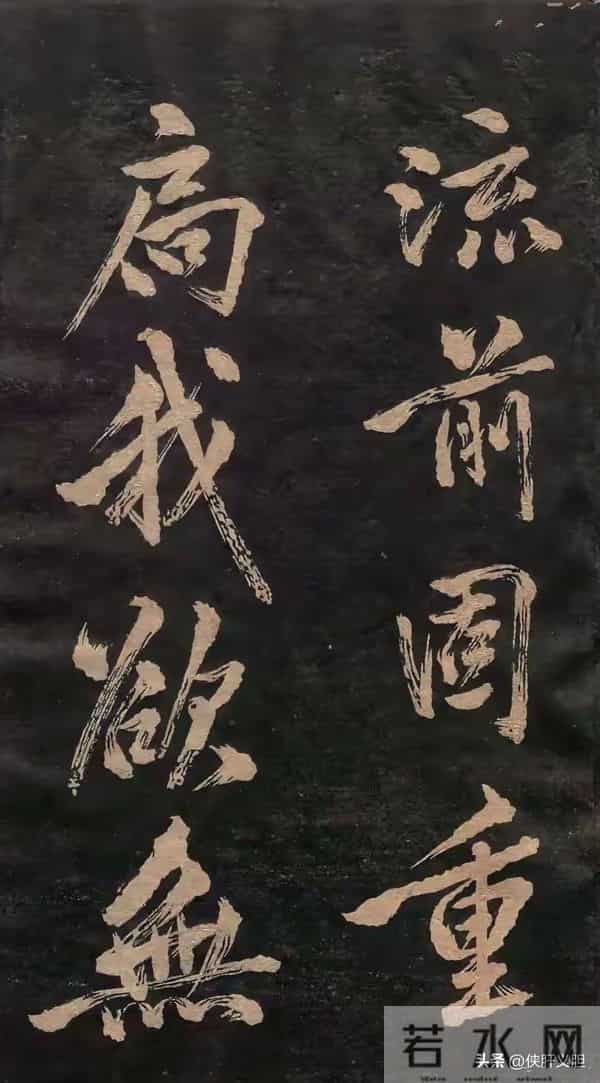 流前固重
扃我欲無
若水网
头条 @侠肝义胆